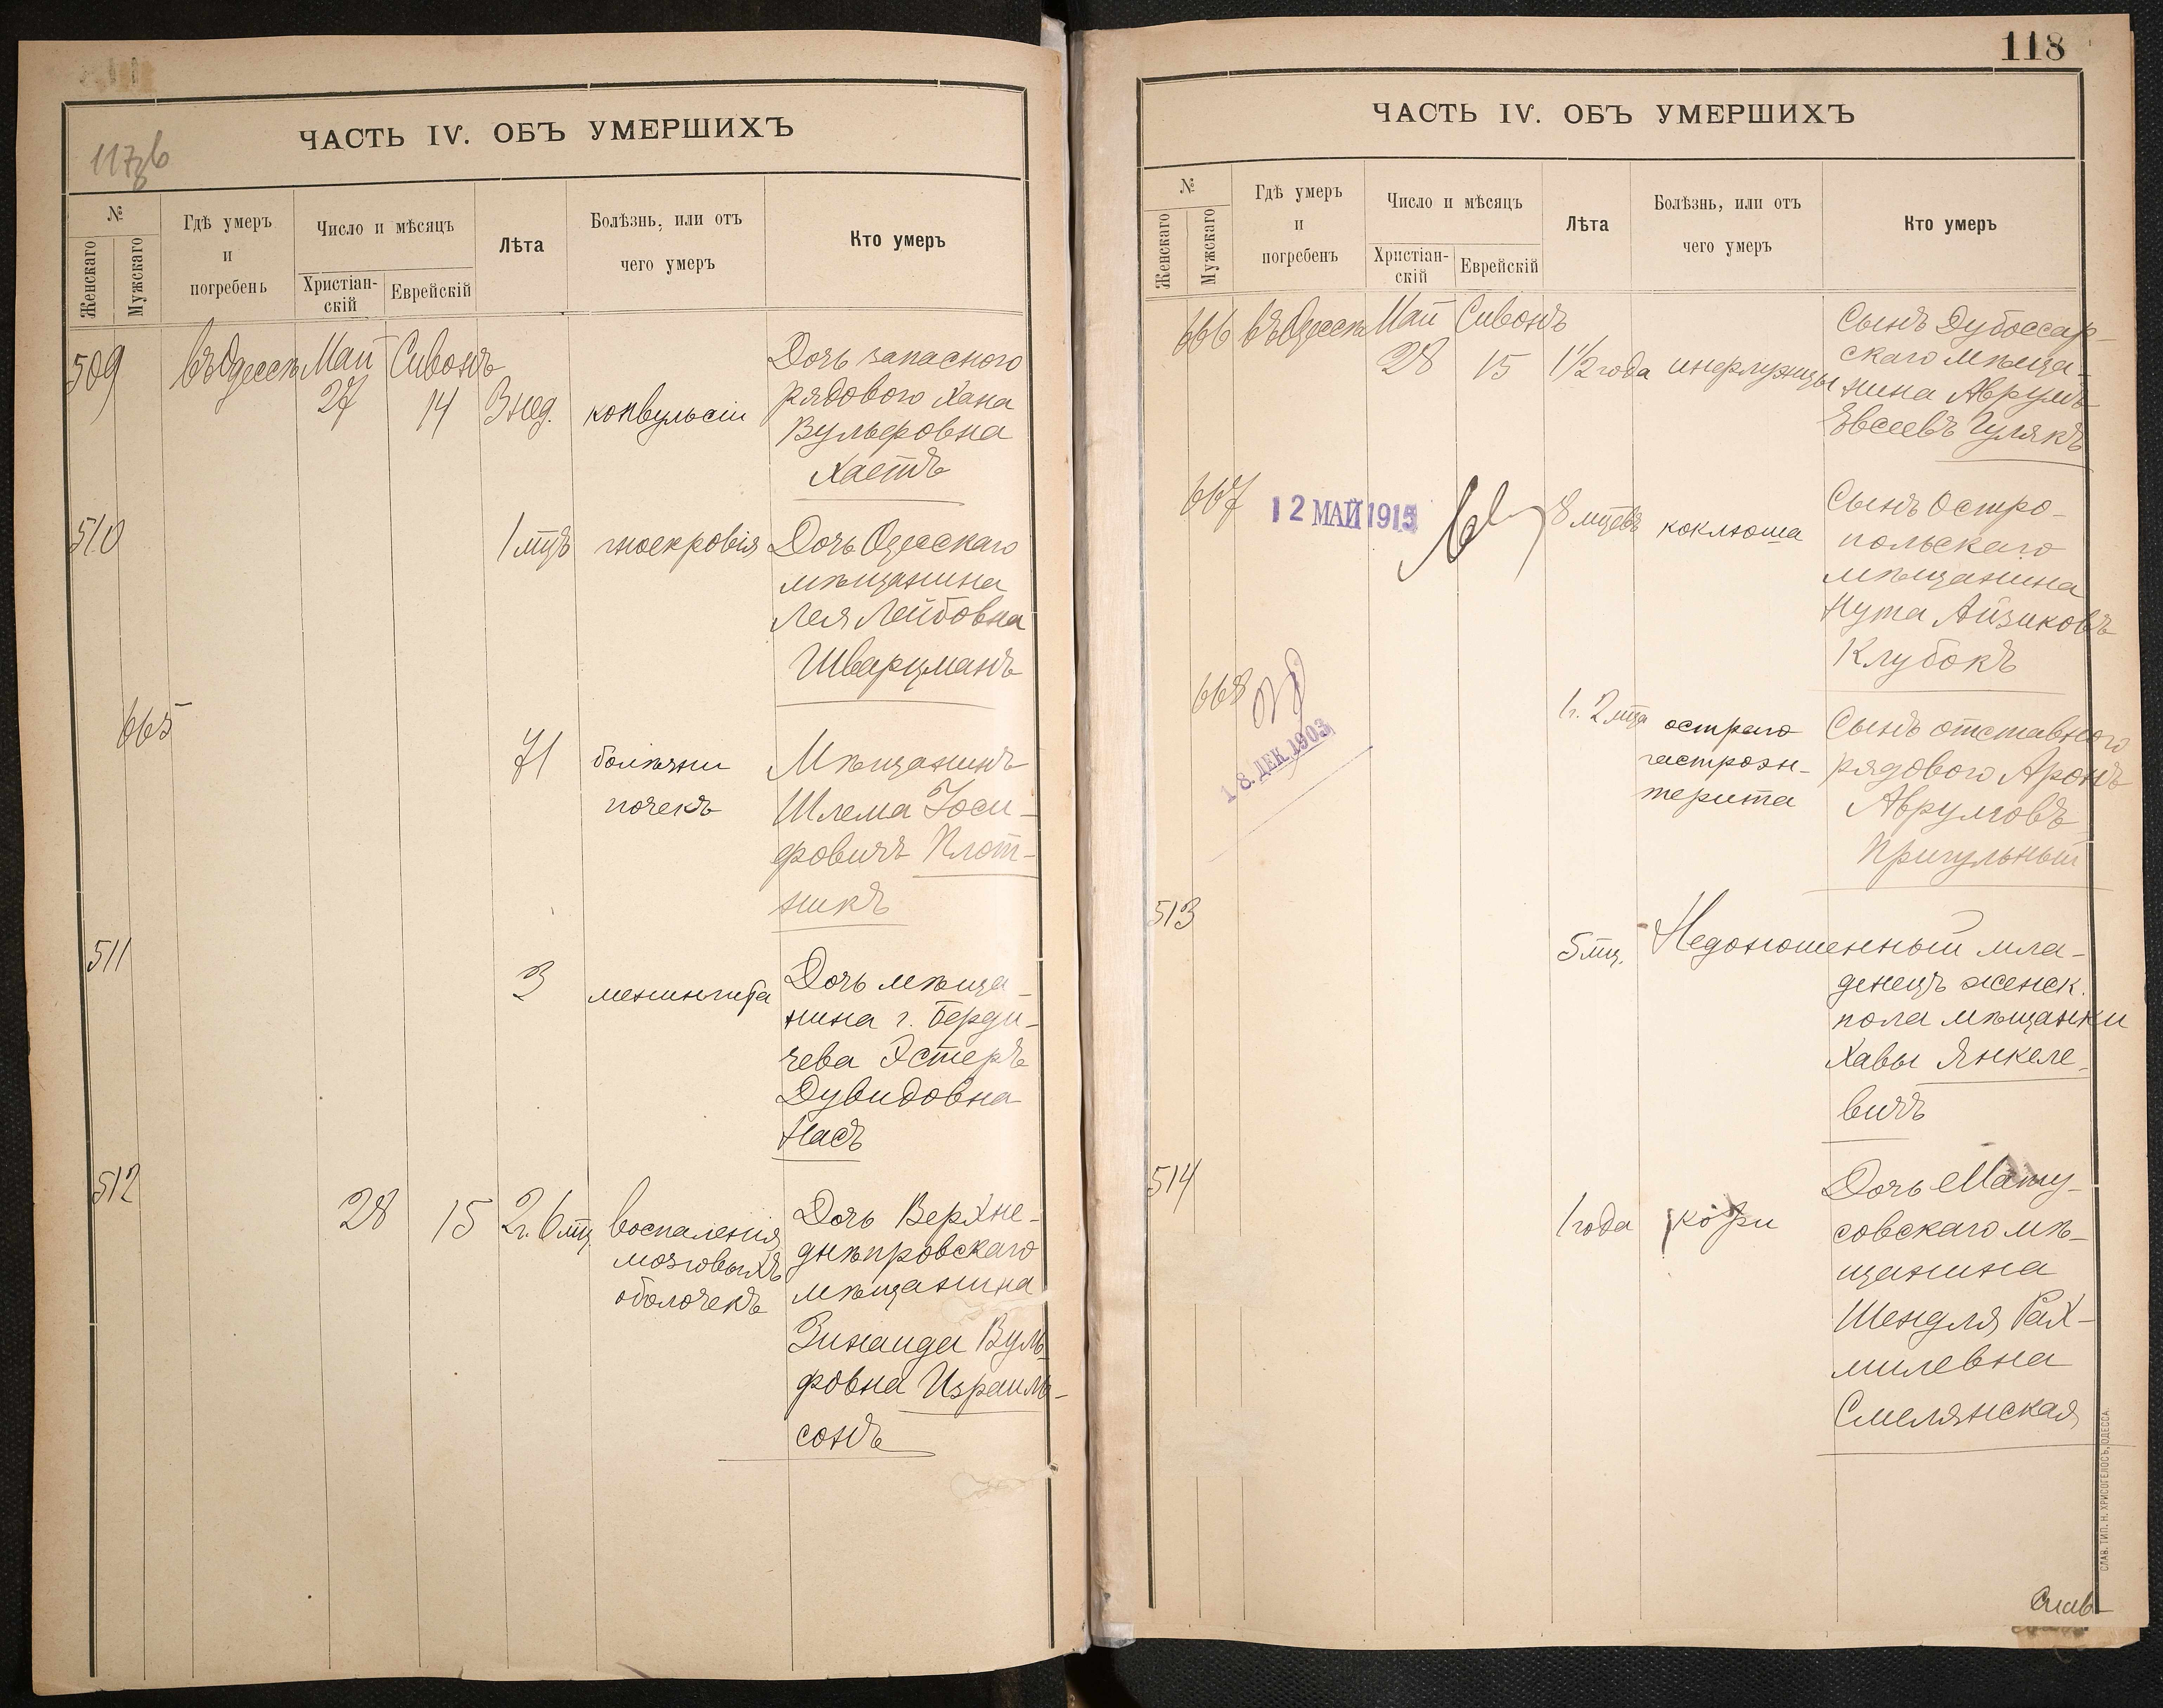 117об
ЧАСТЬ IV. ОБЪ УМЕРШИХЪ
№
Женскаго
Мужскаго
Гдѣ умеръ
и
погребенъ
Число и мѣсяцъ
Христіан-
скій
Еврейскій
Лѣта
Болѣзнь, или отъ
чего умеръ
Кто умеръ
509
въ Одессѣ
Май
27
Сивонъ
14
3 нед.
конвульсіи
Дочь запаснаго
рядового Хана
Вульфовна
Хаетъ
510
1 мцъ
гноекровія
Дочь Одесскаго
мѣщанина
Лея Лейбовна
Шварцманъ
665
71
болѣзни
почекъ
Мѣщанинъ
Шлема Іоси-
фовичъ Плот-
никъ
511
3
менингита
Дочь мѣща-
нина г. Берди-
чева Эстеръ
Дувидовна
Насъ
512
28
15
2 г. 6 мц.
воспаленія
мозговыхъ
оболочекъ
Дочь Верхне-
днѣпровскаго
мѣщанина
Зинаида Вуль-
фовна Израиль-
сонъ
118
ЧАСТЬ IV. ОБЪ УМЕРШИХЪ
№
Женскаго
Мужскаго
Гдѣ умеръ
и
погребенъ
Число и мѣсяцъ
Христіан-
скій
Еврейскій
Лѣта
Болѣзнь, или отъ
чего умеръ
Кто умеръ
666
въ Одессѣ
Май
28
Сивонъ
15
1 1/2 года
инфлуэнцы
Сынъ Дубоссар-
скаго мѣща-
нина Аврумъ
Евсеевъ Гулякъ
667
12 МАЙ 1915
8 мцевъ
коклюша
Сынъ Остро-
польскаго
мѣщанина
Нута Айзиковъ
Клубокъ
668
18. ДЕК. 1903
1 г. 2 мца
остраго
гастроэн-
терита
Сынъ отставного
рядового Аронъ
Аврумовъ
Пригульный
513
5 мц.
Недоношенный мла-
денецъ женск.
пола мѣщанки
Хавы Янкеле-
вичъ
514
1 года
кори
Дочь Мату-
совскаго мѣ-
щанина
Шендля Рах-
милевна
Смелянская
СЛАВ. ТИП. Н. ХРИСОГЕЛОСЪ, ОДЕССА.